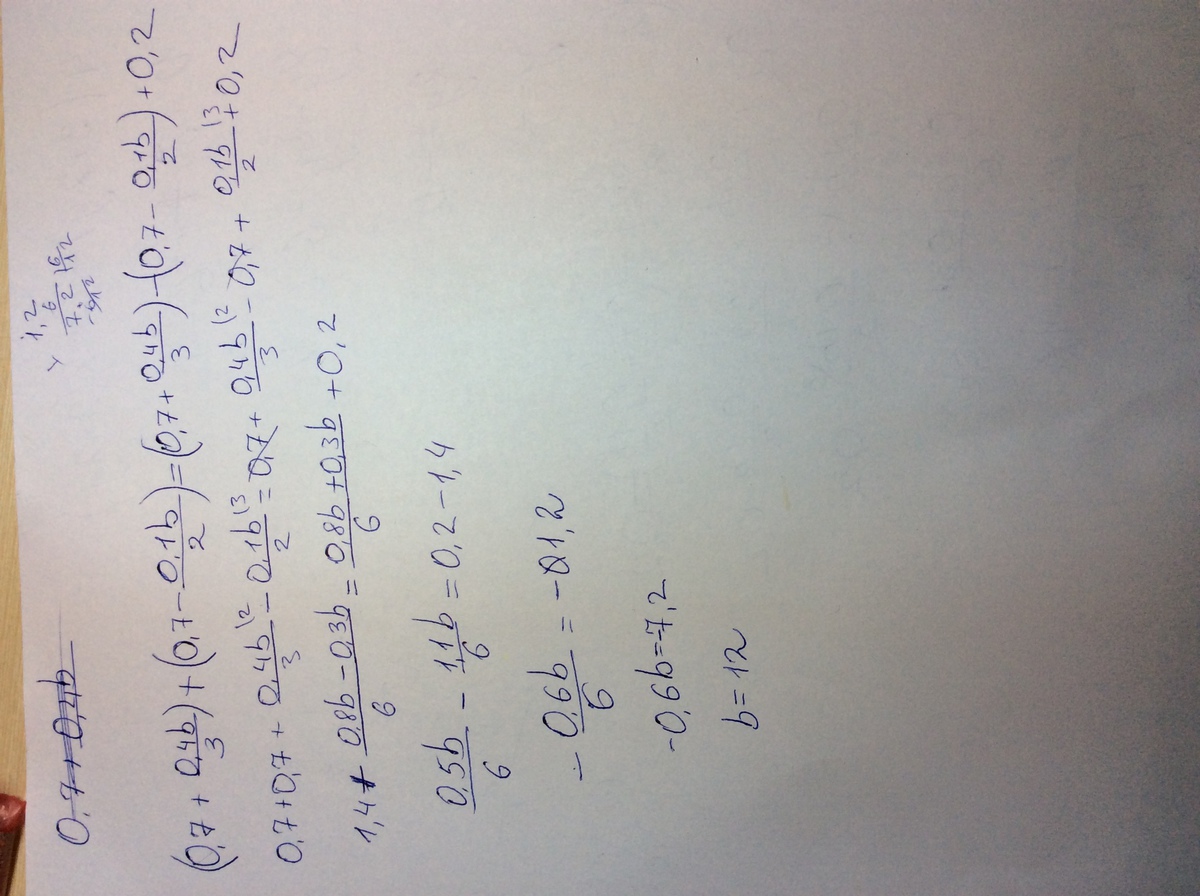 0,7+0,4b
× 1,2
6
7,2 | 6
- 12
(0,7 + 0,4b/3) + (0,7 - 0,1b/2) = (0,7 + 0,4b/3) - (0,7 - 0,1b/2) + 0,2
0,7+0,7 + 0,4b\2/3 - 0,1b\3/2 = 0,7 + 0,4b\2/3 - 0,7 + 0,1b\3/2 + 0,2
1,4 + 0,8b - 0,3b/6 = 0,8b + 0,3b/6 + 0,2
0,5b/6 - 1,1b/6 = 0,2 - 1,4
- 0,6b/6 = - 1,2
-0,6b = -7,2
b = 12